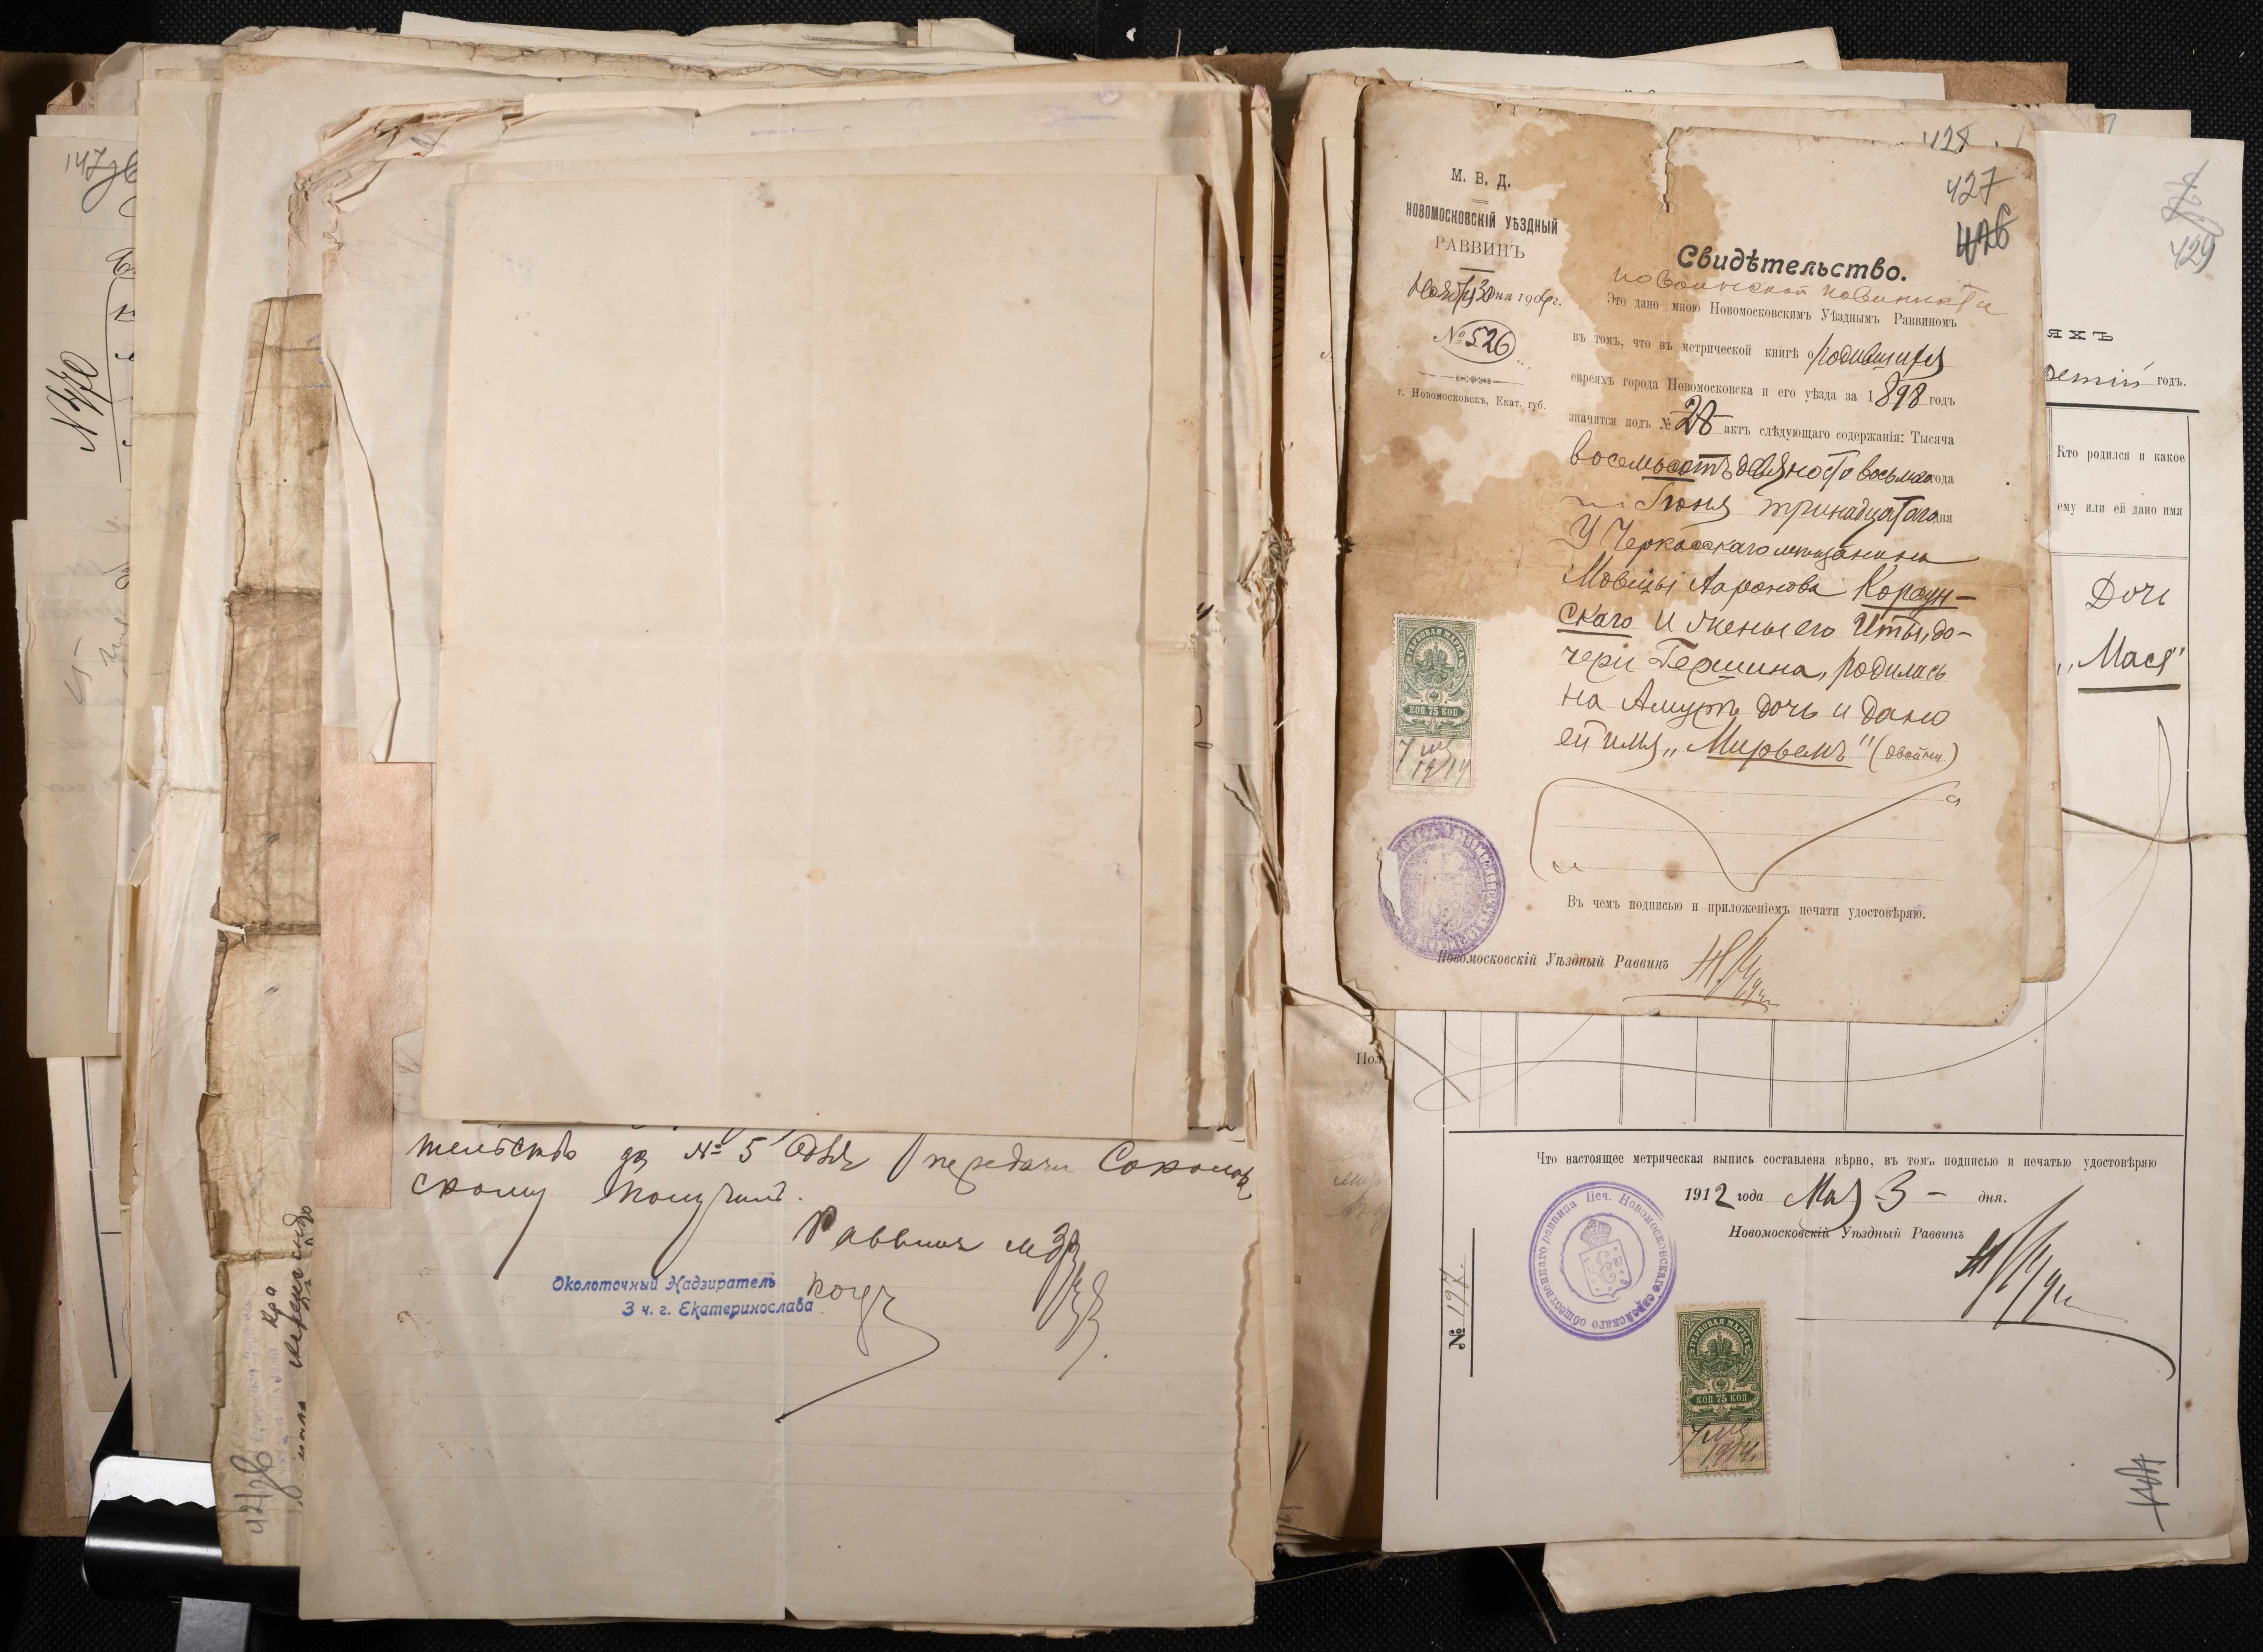 147
№ 470
42
тельство за № 5 для передачи Соколов
скому получилъ.
Раввинъ
Околоточный Надзиратель
3 ч. г. Екатеринослава
428
427
426
М. В. Д.
НОВОМОСКОВСКІЙ УѢЗДНЫЙ
РАВВИНЪ
Ноября 30 дня 190 г.
№ 526
г. Новомосковскъ, Екат. губ.
Свидѣтельство.
по воинской повинности
Это дано мною Новомосковскимъ Уѣзднымъ Раввиномъ
въ томъ, что въ метрической книгѣ о родившихся
евреяхъ города Новомосковска и его уѣзда за 1898 годъ
значится подъ № 28 актъ слѣдующаго содержанія: Тысяча
восемьсотъ девяносто восьмого года
Іюня тринадцатаго дня
У Черкасскаго мѣщанина
Мовшы Ааронова Корсун-
скаго и жены его Иты, до-
чери Гершина, родилась
на Амурѣ дочь и дано
ей имя „Мирьемъ" (двойни)
ГЕРБОВАЯ МАРКА
КОП 75 КОП
1914
Въ чемъ подписью и приложеніемъ печати удостовѣряю.
Новомосковскій Уѣздный Раввинъ
429
яхъ
третій годъ.
Кто родился и какое
ему или ей дано имя
Дочь
„Мася"
Пол
Что настоящее метрическая выпись составлена вѣрно, въ томъ подписью и печатью удостовѣряю
1912 года Мая 3 - дня.
Новомосковскій Уѣздный Раввинъ
Печ. Новомосковскаго еврейскаго общественнаго раввина
№ 197.
ГЕРБОВАЯ МАРКА
КОП 75 КОП
1914.